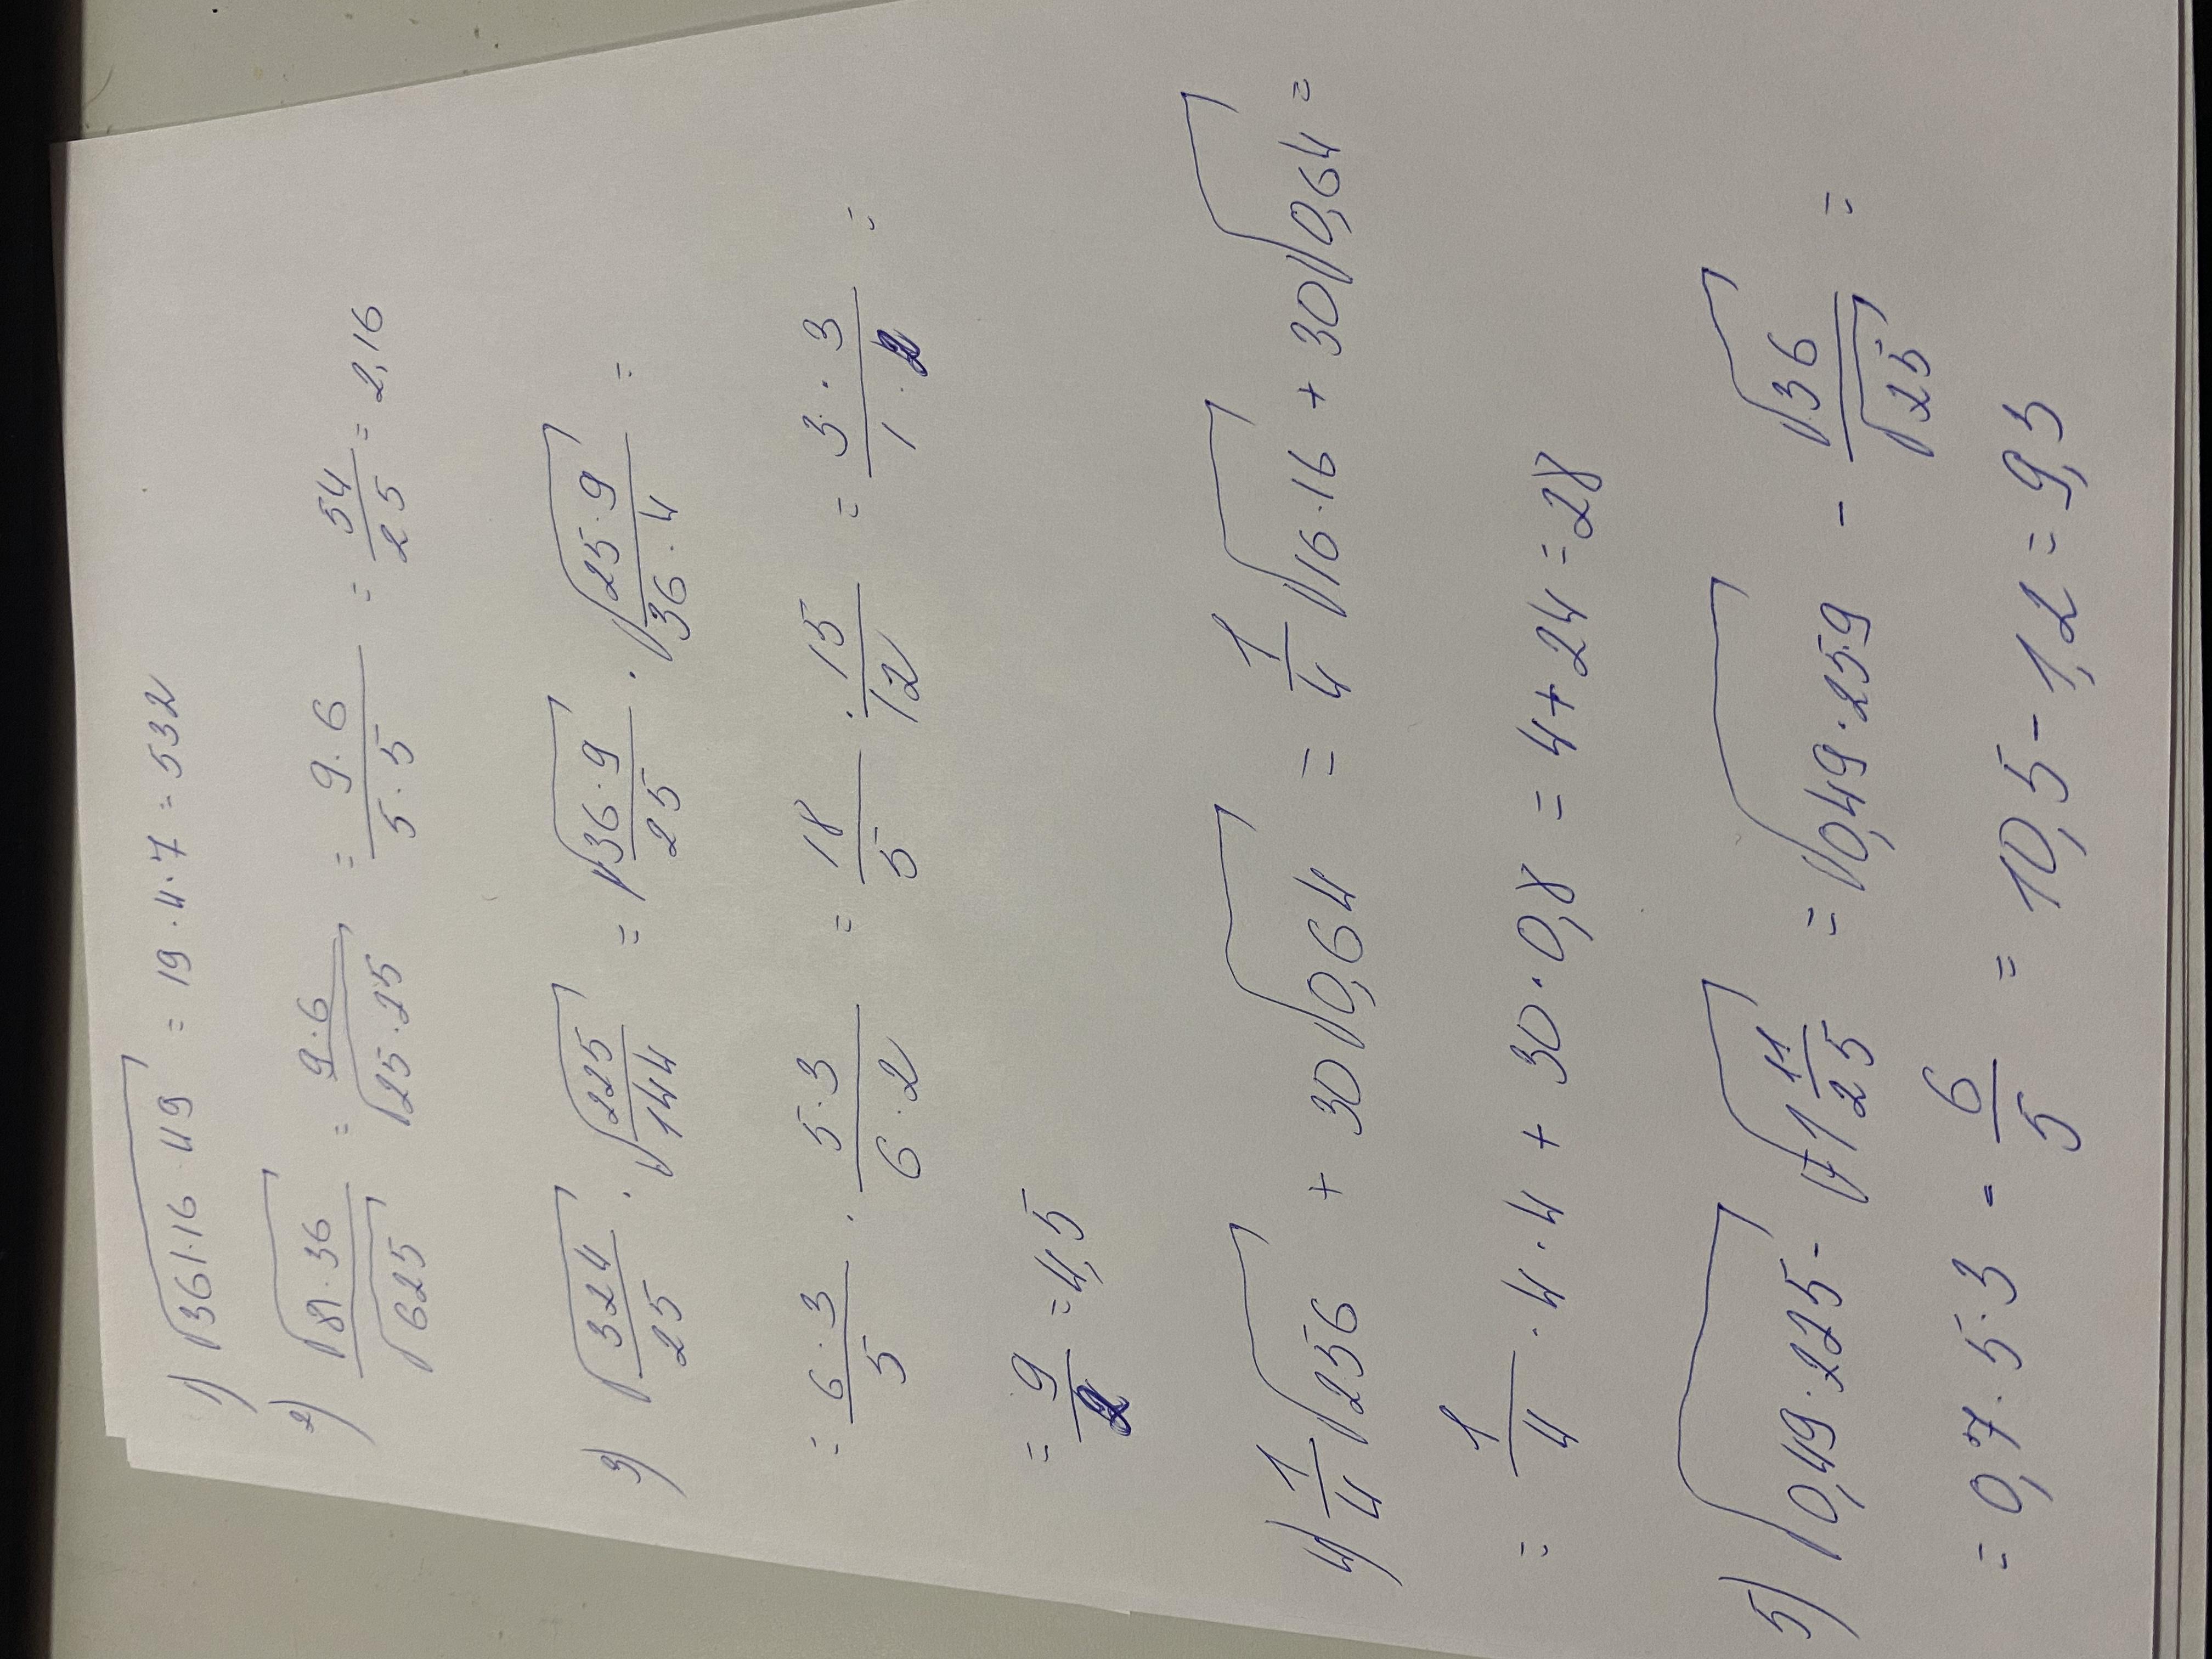 1) √361·16·49 = 19·4·7 = 532
2) √81·36 / √625 = 9·6 / √25·25 = 9·6 / 5·5 = 54/25 = 2,16
3) √324/25 · √225/144 = √36·9/25 · √25·9/36·4 =
= 6·3/5 · 5·3/6·2 = 18/5 · 15/12 = 3·3/1·2 =
= 9/2 = 4,5
4) 1/4 √256 + 30√0,64 = 1/4 √16·16 + 30√0,64 =
= 1/4 · 4·4 + 30·0,8 = 4+24 = 28
5) √0,49·225 - √1 11/25 = √0,49·25·9 - √36/√25 =
= 0,7·5·3 - 6/5 = 10,5-1,2 = 9,3